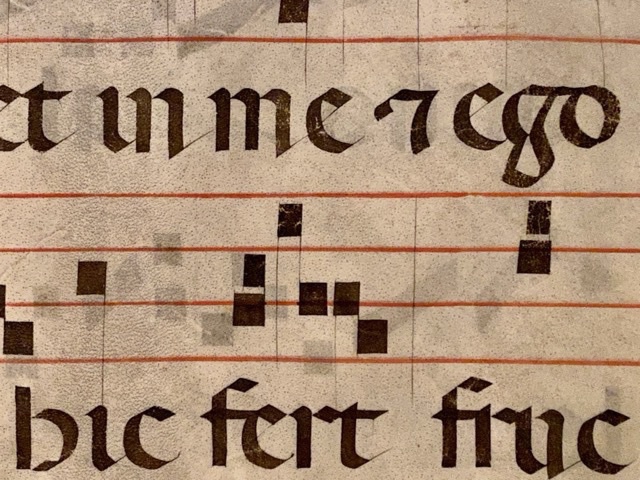 et in me ⁊ ego
hic fert fruc